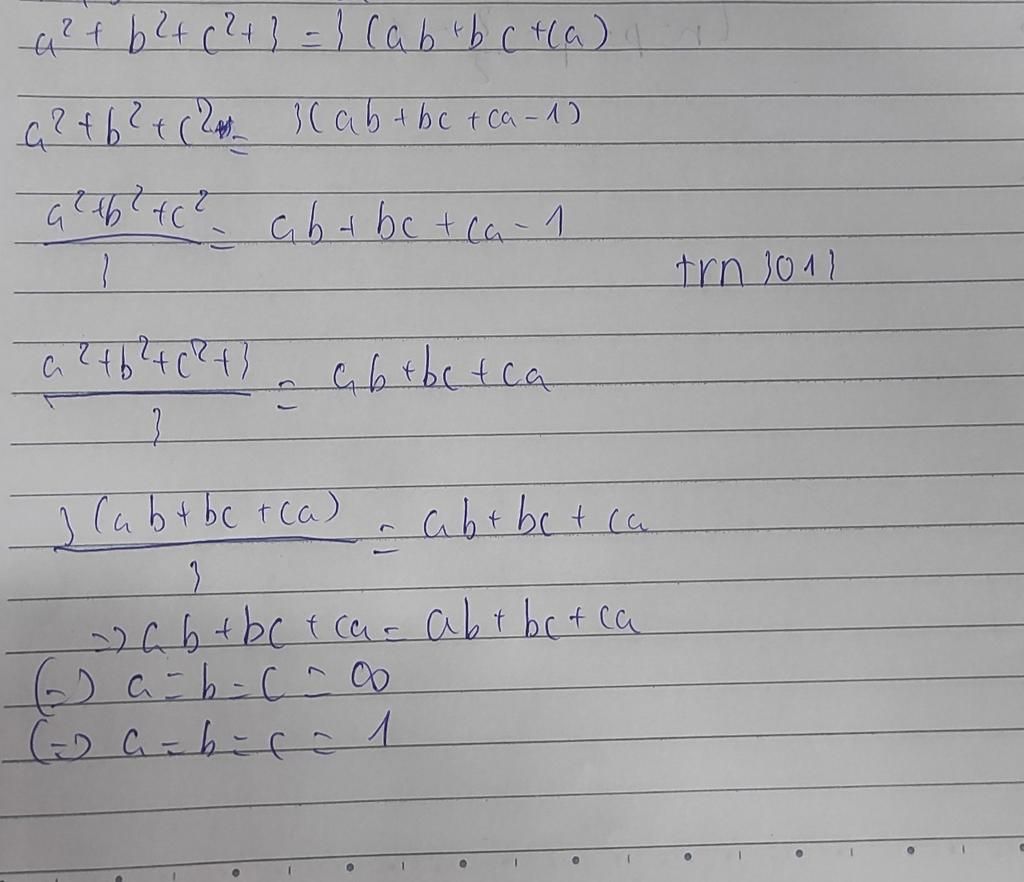 a² + b² + c² + 3 = 3 (ab + bc + ca)
a² + b² + c² = 3(ab + bc + ca - 1)
(a² + b² + c²) / 3 = ab + bc + ca - 1
trn 3013
(a² + b² + c² + 3) / 3 = ab + bc + ca
3 (ab + bc + ca) / 3 = ab + bc + ca
=> ab + bc + ca = ab + bc + ca
(=) a = b = c = ∞
(=) a = b = c = 1